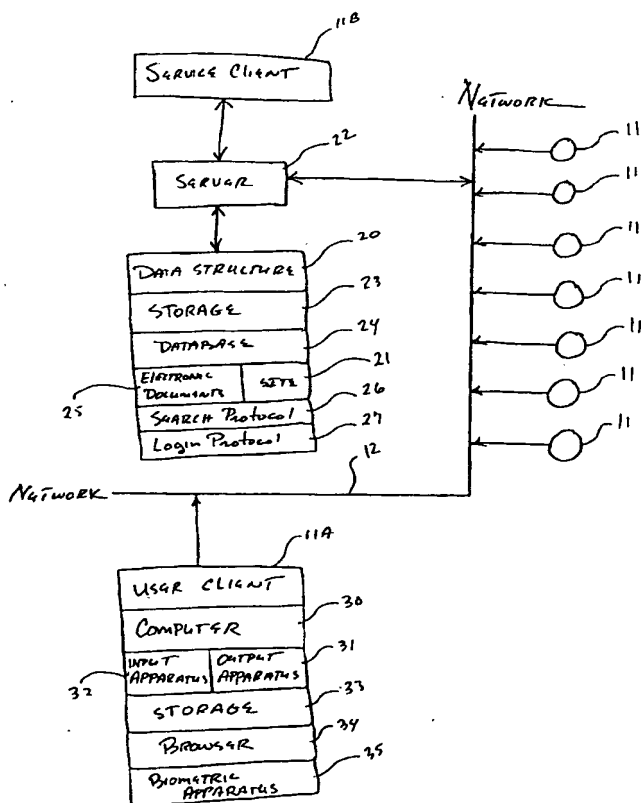 11B
SERVICE CLIENT
NETWORK
22
SERVER
11
11
11
11
11
11
11
20
DATA STRUCTURE
23
STORAGE
24
DATABASE
21
ELECTRONIC DOCUMENTS
SITE
25
26
SEARCH PROTOCOL
27
LOGIN PROTOCOL
12
NETWORK
11A
USER CLIENT
30
COMPUTER
31
INPUT APPARATUS
OUTPUT APPARATUS
32
33
STORAGE
34
BROWSER
35
BIOMETRIC APPARATUS